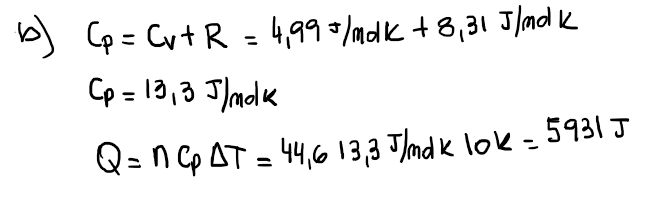 b) Cp = Cv + R = 4,99 J/molK + 8,31 J/mol K
Cp = 13,3 J/molK
Q = n Cp ΔT = 44,6 13,3 J/mol K 10K = 5931 J